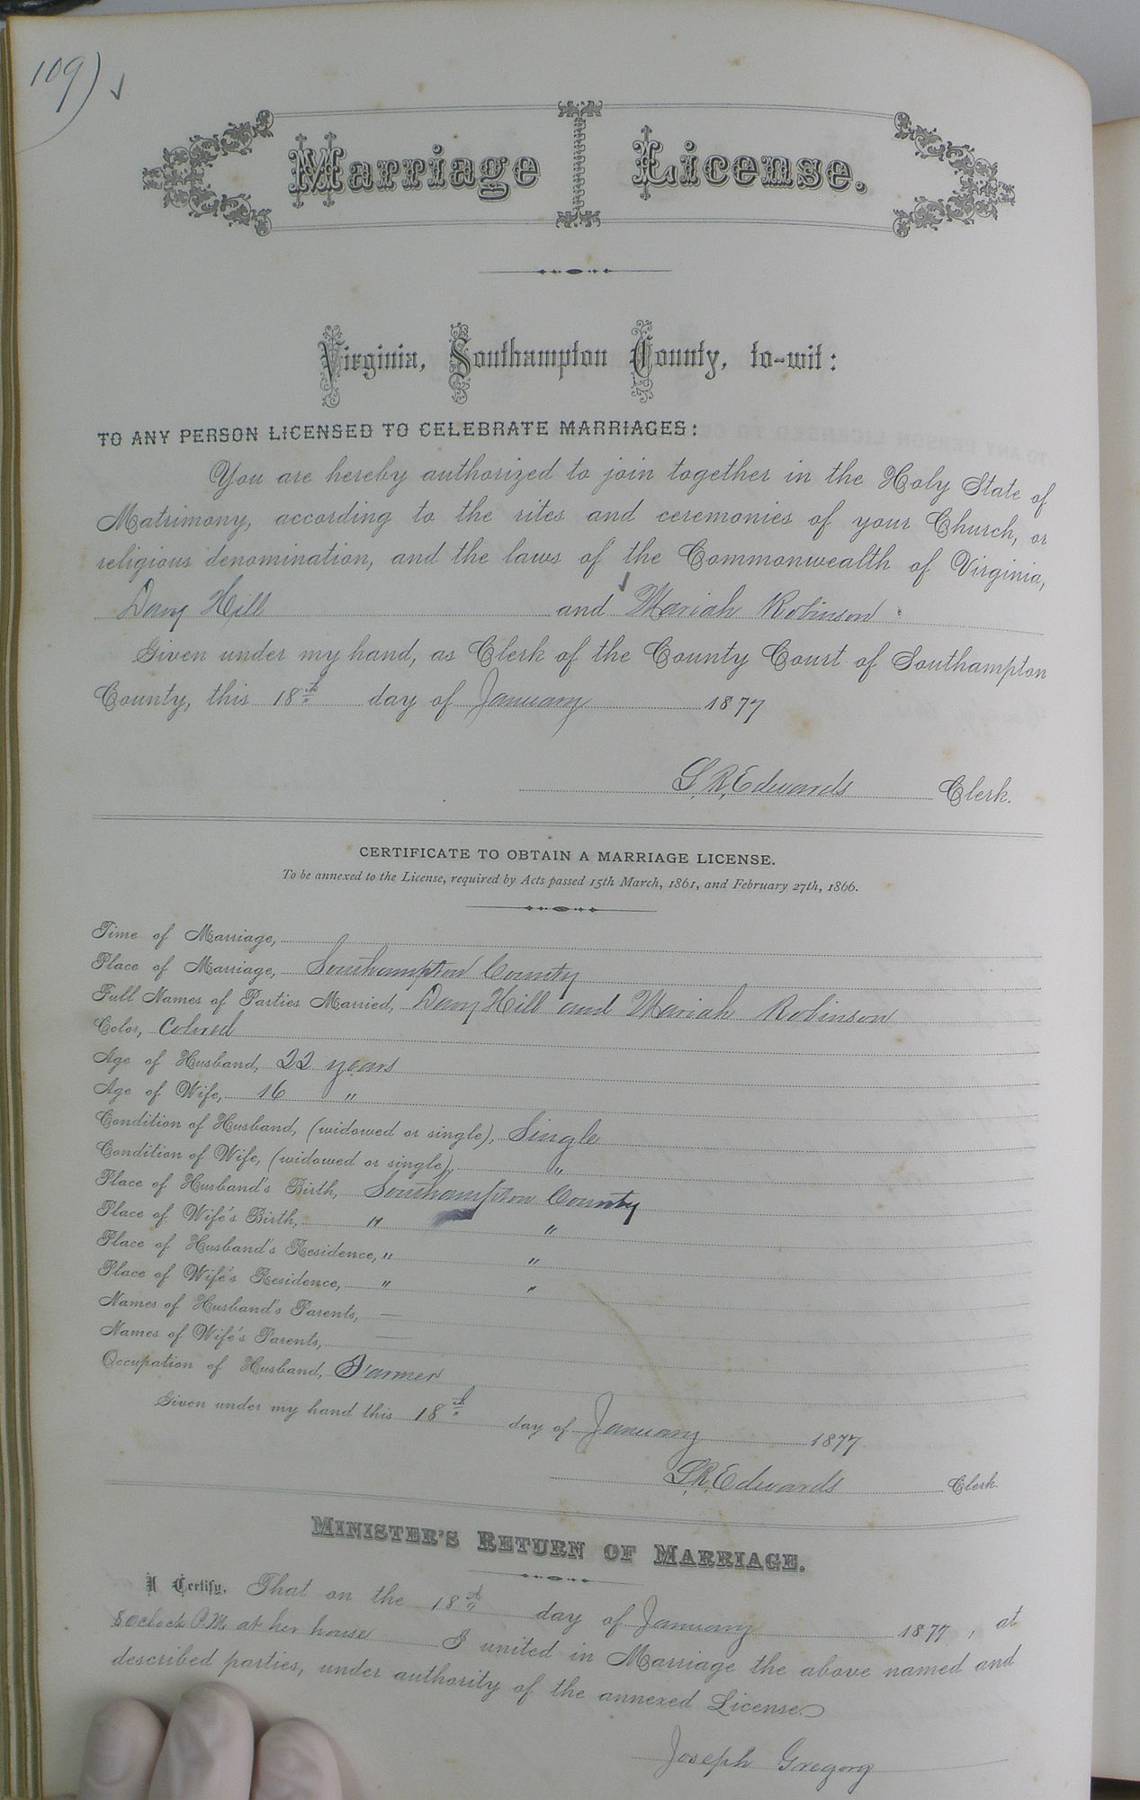 109)
Marriage License.
Virginia, Southampton County, to-wit:
TO ANY PERSON LICENSED TO CELEBRATE MARRIAGES:
You are hereby authorized to join together in the Holy State of
Matrimony, according to the rites and ceremonies of your Church, or
religious denomination, and the laws of the Commonwealth of Virginia,
Hill and Mariah Robinson
Given under my hand, as Clerk of the County Court of Southampton
County, this 18th day of January 1877
L.R. Edwards Clerk.
CERTIFICATE TO OBTAIN A MARRIAGE LICENSE.
To be annexed to the License, required by Acts passed 15th March, 1861, and February 27th, 1866.
Time of Marriage,
Place of Marriage, Southampton County
Full Names of Parties Married, Hill and Mariah Robinson
Color, Colored
Age of Husband, 22 years
Age of Wife, 16 "
Condition of Husband, (widowed or single), Single
Condition of Wife, (widowed or single), "
Place of Husband's Birth, Southampton County
Place of Wife's Birth, " "
Place of Husband's Residence, " "
Place of Wife's Residence, " "
Names of Husband's Parents, —
Names of Wife's Parents, —
Occupation of Husband, Farmer
Given under my hand this 18th day of January 1877
L.R. Edwards Clerk.
MINISTER'S RETURN OF MARRIAGE.
I Certify, That on the 18th day of January 1877, at
8 oclock P.M. at her house I united in Marriage the above named and
described parties, under authority of the annexed License.
Joseph Gregory